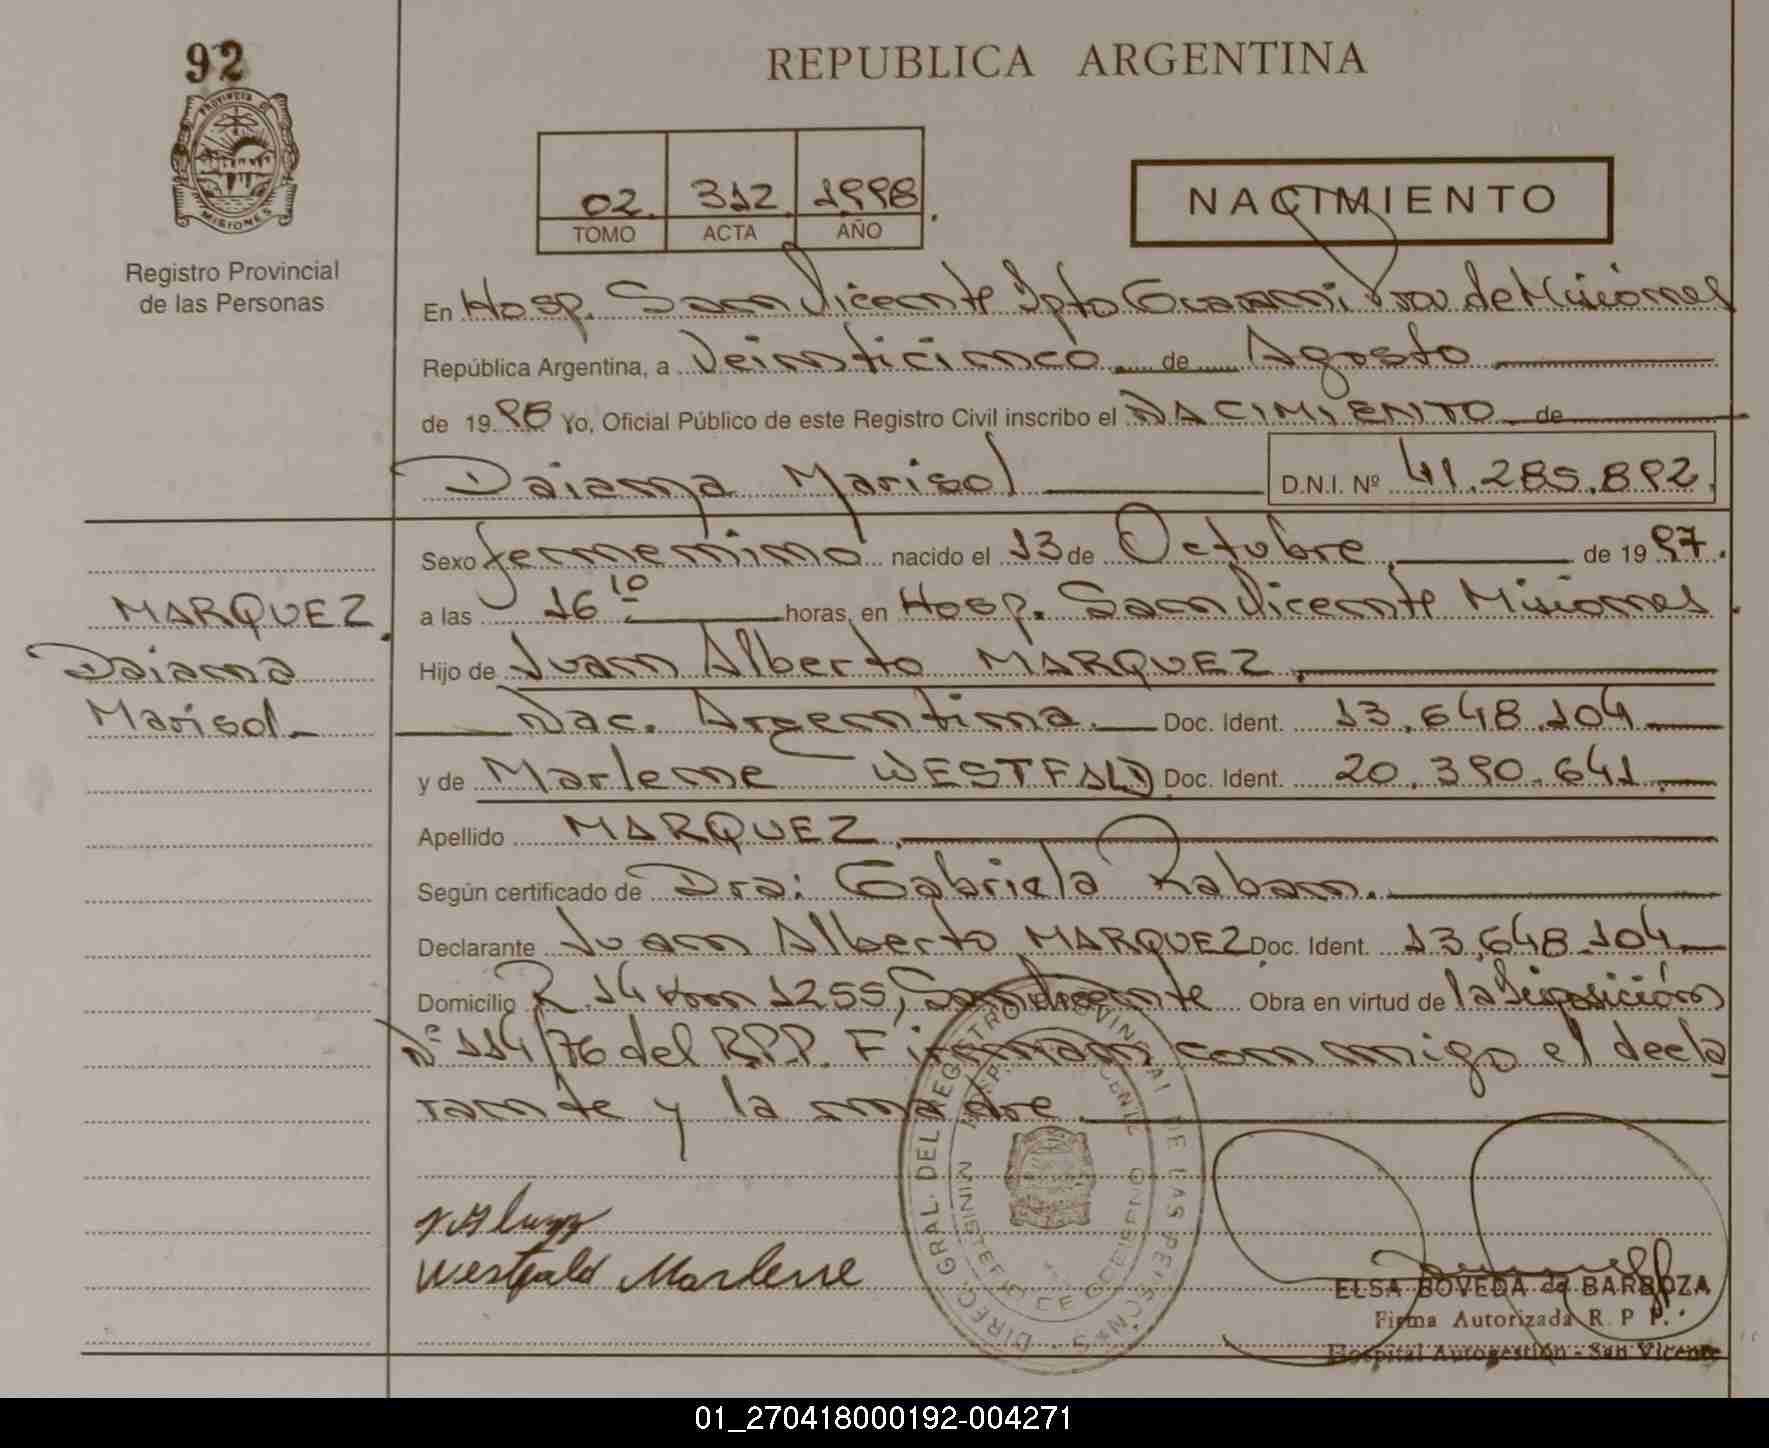 92
REPUBLICA ARGENTINA
PROVINCIA DE
MISIONES
Registro Provincial
de las Personas
02. 312. 1998.
TOMO ACTA AÑO
NACIMIENTO
En Hosp. San Vicente Dpto Guarani Prov. de Misiones
República Argentina, a Veinticinco de Agosto
de 1998 Yo, Oficial Público de este Registro Civil inscribo el NACIMIENTO de
Daiana Marisol D.N.I. Nº 41.285.892.
Sexo femenino nacido el 13 de Octubre, de 1997.
MARQUEZ.
a las 16 10 horas, en Hosp. San Vicente Misiones.
Daiana
Hijo de Juan Alberto MARQUEZ.
Marisol
Nac. Argentina. Doc. Ident. 13.648.104
y de Marlene WESTFALD Doc. Ident. 20.390.641
Apellido MARQUEZ.
Según certificado de Dra: Gabriela Raban.
Declarante Juan Alberto MARQUEZ Doc. Ident. 13.648.104
Domicilio R. 14 km 1255, San Vicente Obra en virtud de la Disposición
Nº 114/76 del R.P.P. Firman conmigo el decla
rante y la madre.
DIREC. GRAL. DEL REGISTRO PROVINCIAL DE LAS PERSONAS
Westfald Marlene
ELSA BOVEDA de BARBOZA
Firma Autorizada R. P P.
Hospital Autogestión - San Vicente
01_270418000192-004271